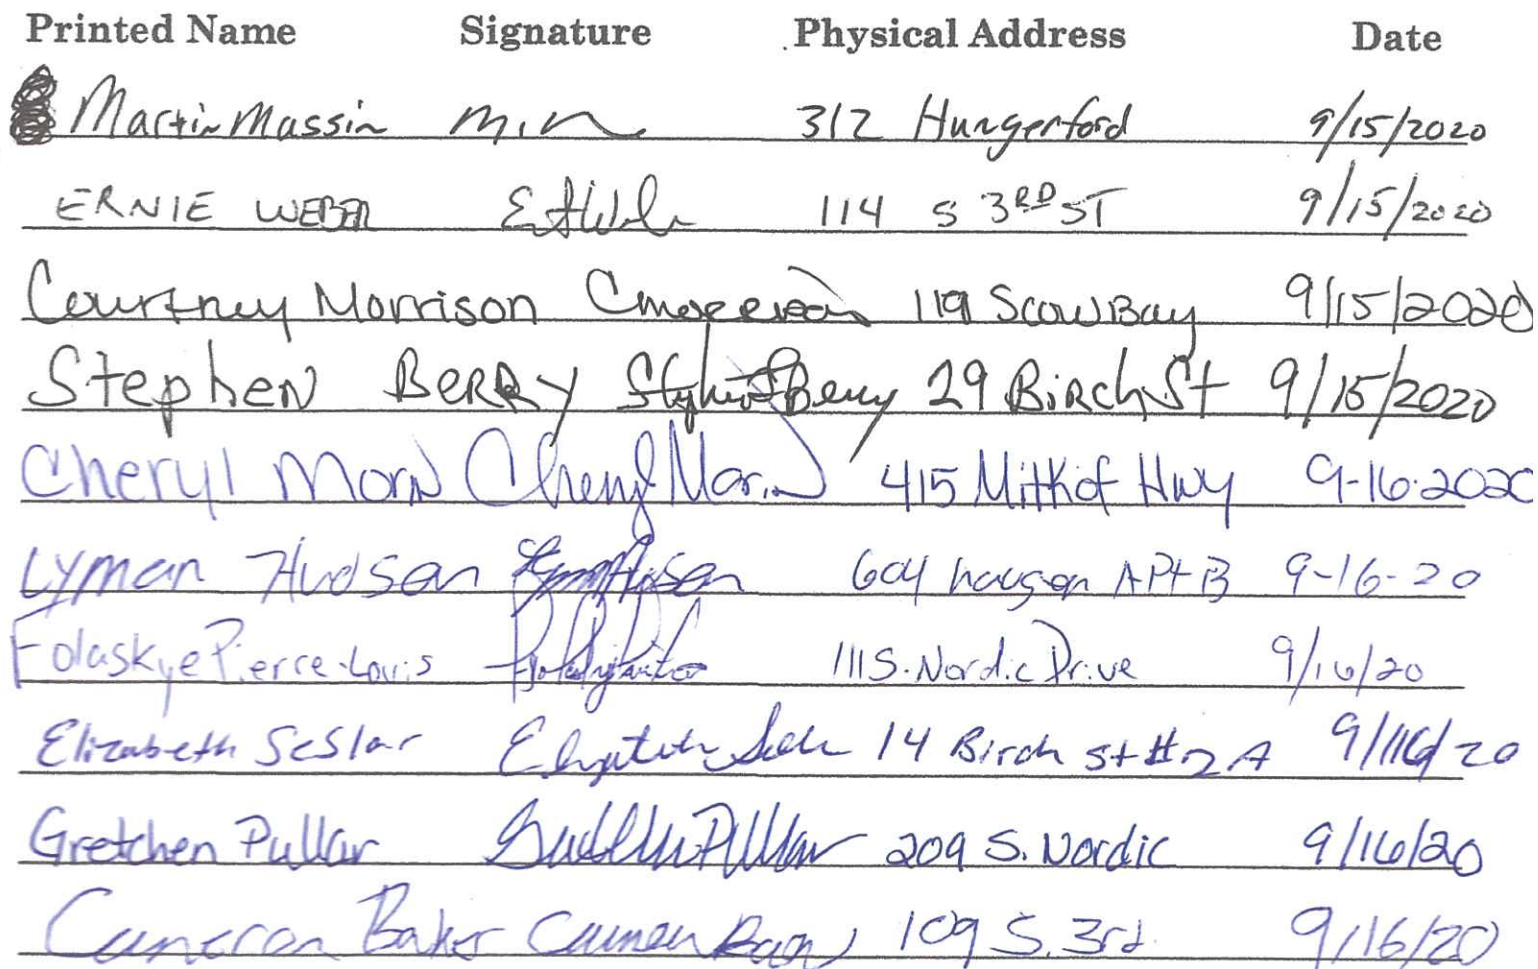 Printed Name Signature Physical Address Date
Martin Massin 312 Hungerford 9/15/2020
ERNIE WEBER 114 S 3RD ST 9/15/2020
Courtney Morrison 119 Scow Bay 9/15/2020
Stephen BERRY Stephen Berry 29 BiRch St 9/15/2020
Cheryl Morin Cheryl Morin 415 Mitkof Hwy 9-16-2020
Lyman Hudson 604 haugen APt B 9-16-20
Folaskye Pierre-Louis 111 S. Nordic Drive 9/16/20
Elizabeth SeSlar 14 Birch St #2 A 9/16/20
Gretchen Pullar Gretchen Pullar 209 S. Nordic 9/16/20
Cameron Baker Cameron Baker 109 S. 3rd 9/16/20